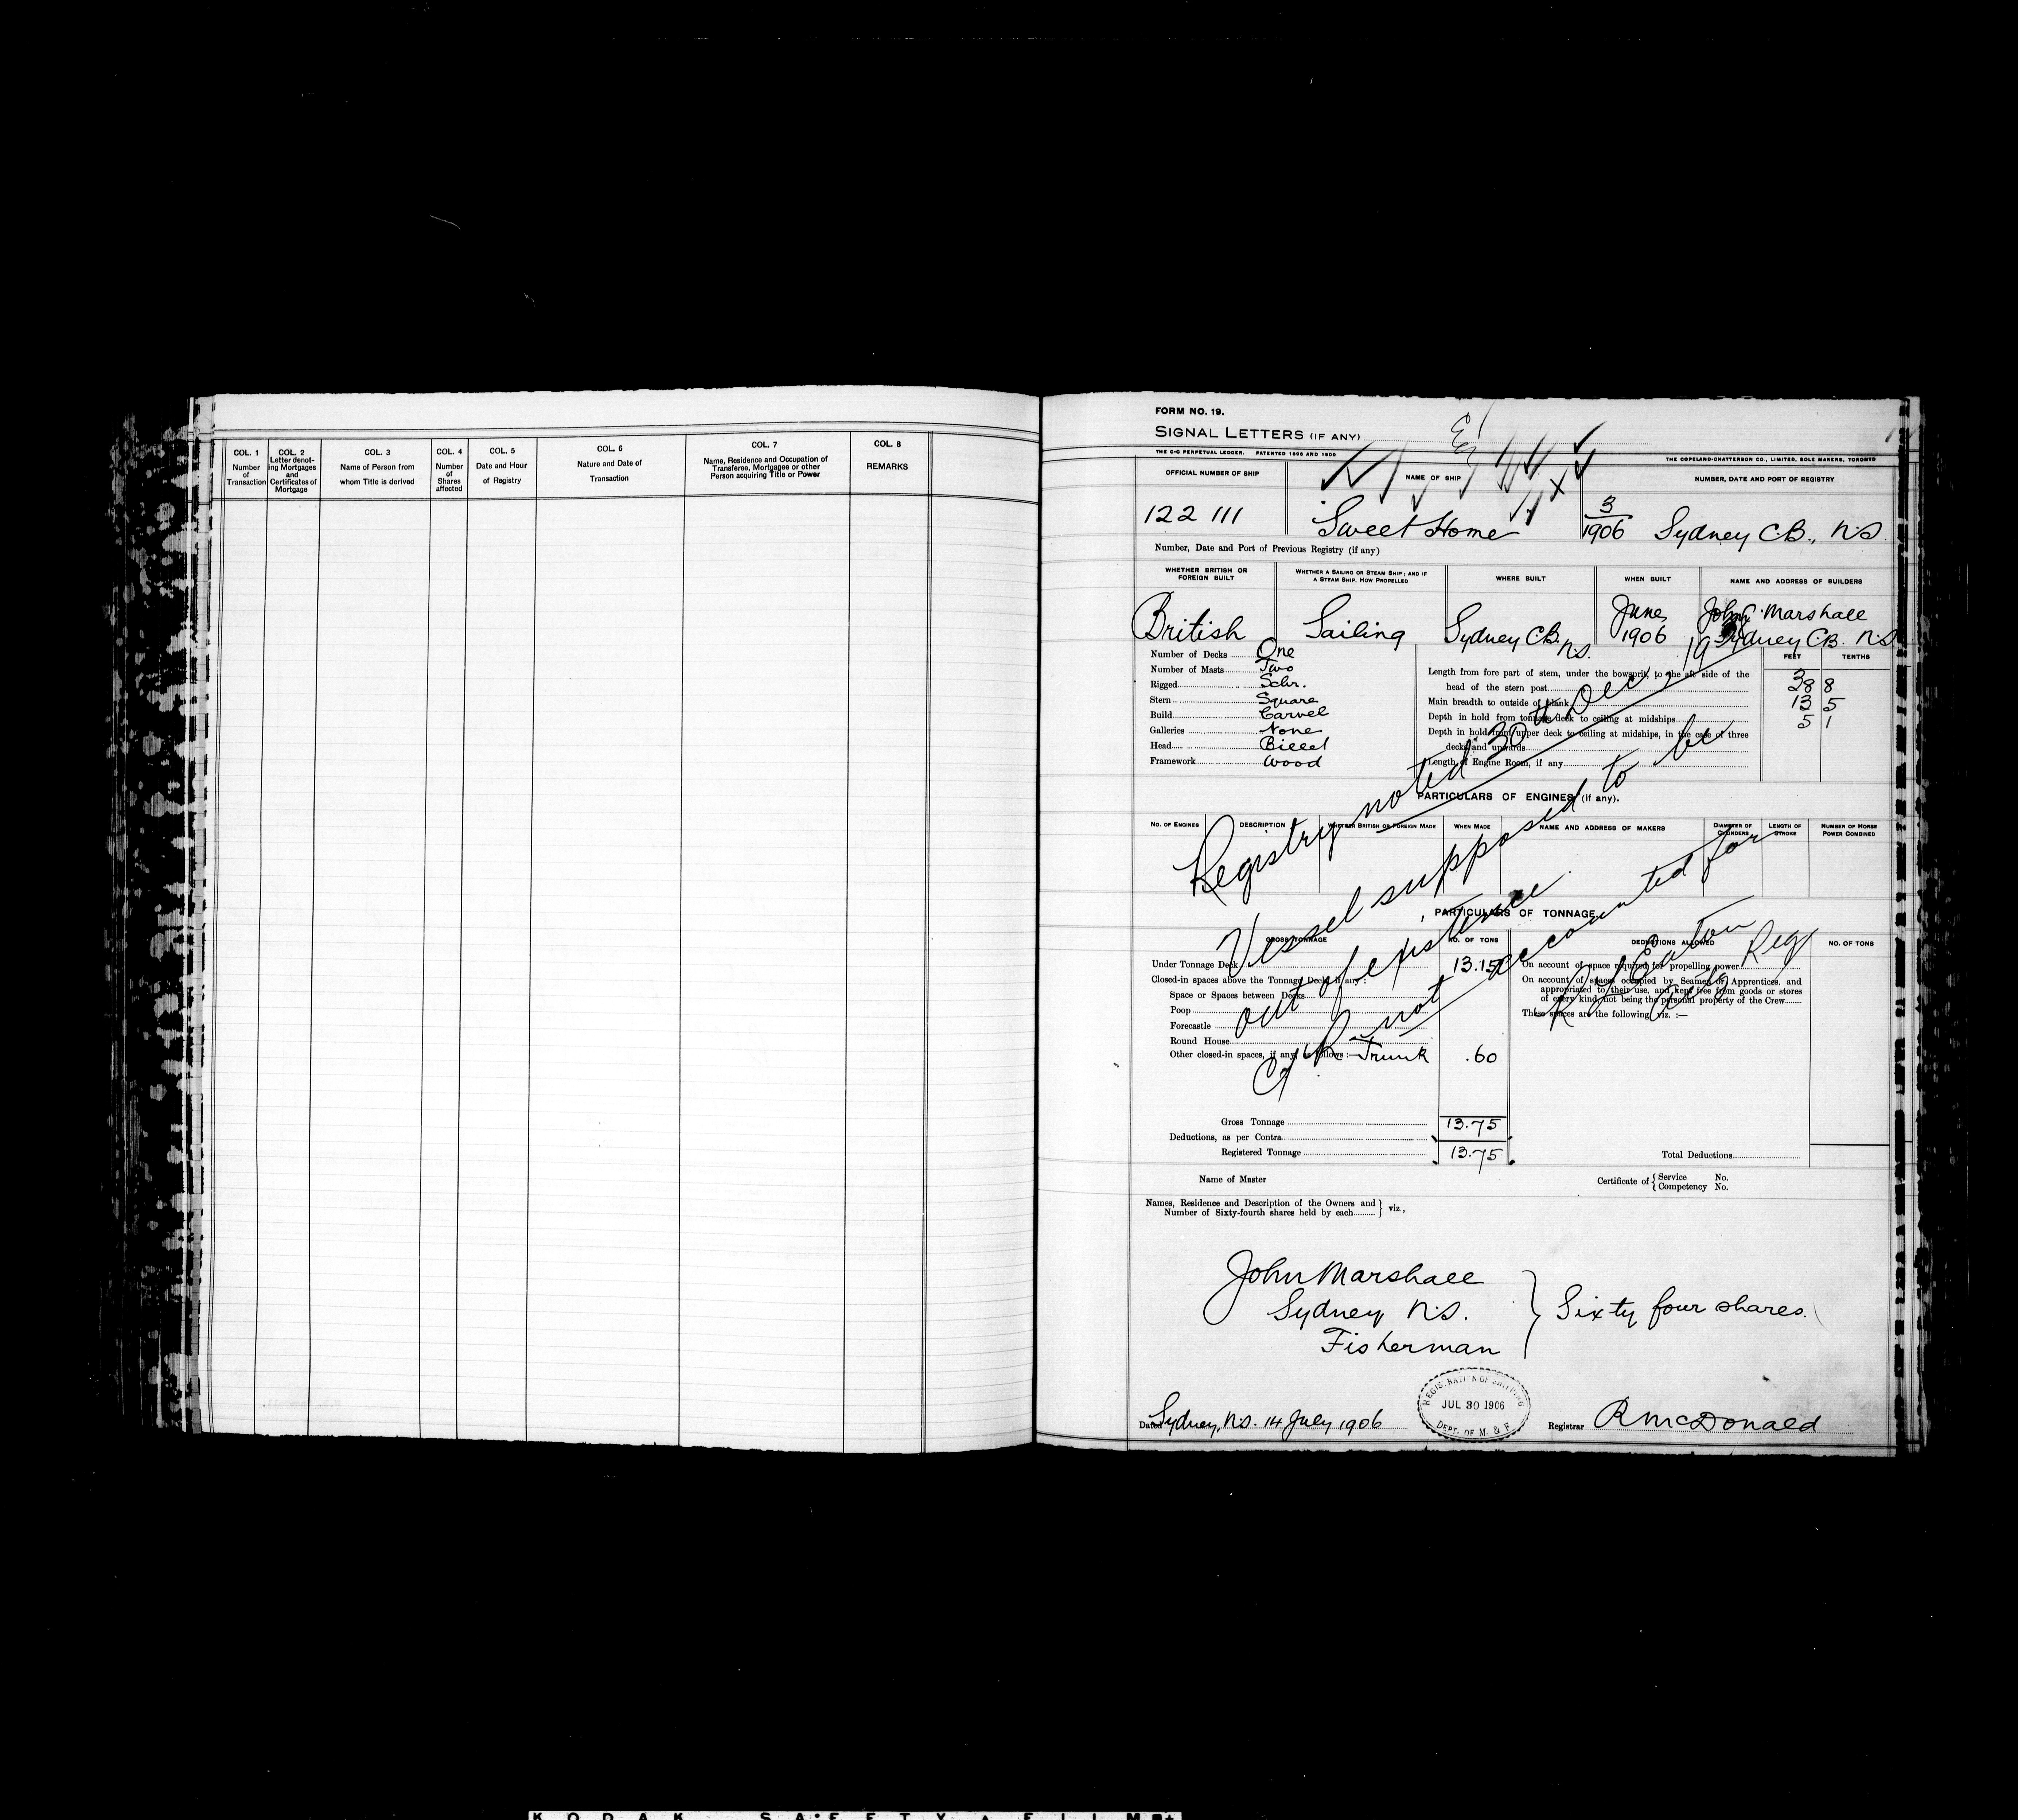 COL. 1
Number
of
Transaction
COL. 2
Letter denot-
ing Mortgages
and
Certificates of
Mortgage
COL. 3
Name of Person from
whom Title is derived
COL. 4
Number
of
Shares
affected
COL. 5
Date and Hour
of Registry
COL. 6
Nature and Date of
Transaction
COL. 7
Name, Residence and Occupation of
Transferee, Mortgagee or other
Person acquiring Title or Power
COL. 8
REMARKS
FORM NO. 19.
SIGNAL LETTERS (IF ANY)
THE C-C PERPETUAL LEDGER. PATENTED 1896 AND 1900
THE COPELAND-CHATTERSON CO., LIMITED, SOLE MAKERS, TORONTO
OFFICIAL NUMBER OF SHIP
NAME OF SHIP
NUMBER, DATE AND PORT OF REGISTRY
122 111
Sweet Home
3
1906 Sydney C.B., N.S.
Number, Date and Port of Previous Registry (if any)
WHETHER BRITISH OR
FOREIGN BUILT
WHETHER A SAILING OR STEAM SHIP; AND IF
A STEAM SHIP, HOW PROPELLED
WHERE BUILT
WHEN BUILT
NAME AND ADDRESS OF BUILDERS
British
Sailing
Sydney C.B.
N.S.
June
1906
John Marshall
Sydney C.B. N.S.
Number of Decks One
Number of Masts Two
Rigged Schr.
Stern Square
Build Carvel
Galleries None
Head Billet
Framework Wood
FEET TENTHS
Length from fore part of stem, under the bowsprit, to the aft side of the
head of the stern post 38 8
Main breadth to outside of plank 13 5
Depth in hold from tonnage deck to ceiling at midships 5 1
Depth in hold from upper deck to ceiling at midships, in the case of three
decks and upwards
Length of Engine Room, if any
PARTICULARS OF ENGINES (if any).
NO. OF ENGINES
DESCRIPTION
WHETHER BRITISH OR FOREIGN MADE
WHEN MADE
NAME AND ADDRESS OF MAKERS
DIAMETER OF
CYLINDERS
LENGTH OF
STROKE
NUMBER OF HORSE
POWER COMBINED
Registry noted 30th Dec, 19
Vessel supposed to be
out of existence
C of R not accounted for
Eaton
Reg
PARTICULARS OF TONNAGE
GROSS TONNAGE
NO. OF TONS
DEDUCTIONS ALLOWED
NO. OF TONS
Under Tonnage Deck 13.15
Closed-in spaces above the Tonnage Deck, if any:
Space or Spaces between Decks
Poop
Forecastle
Round House
Other closed-in spaces, if any, as follows:— Trunk .60
Gross Tonnage 13.75
Deductions, as per Contra
Registered Tonnage 13.75
On account of space required for propelling power
On account of spaces occupied by Seamen or Apprentices, and
appropriated to their use, and kept free from goods or stores
of every kind, not being the personal property of the Crew
These spaces are the following, viz. :—
Total Deductions
Name of Master
Certificate of { Service No.
Competency No.
Names, Residence and Description of the Owners and
Number of Sixty-fourth shares held by each } viz,
John Marshall
Sydney N.S.
Fisherman
Sixty four shares.
REGISTRATION OF SHIPPING
JUL 30 1906
DEPT. OF M. & F.
Dated Sydney, N.S. 14 July 1906
Registrar R McDonald
KODAK SAFETY FILM